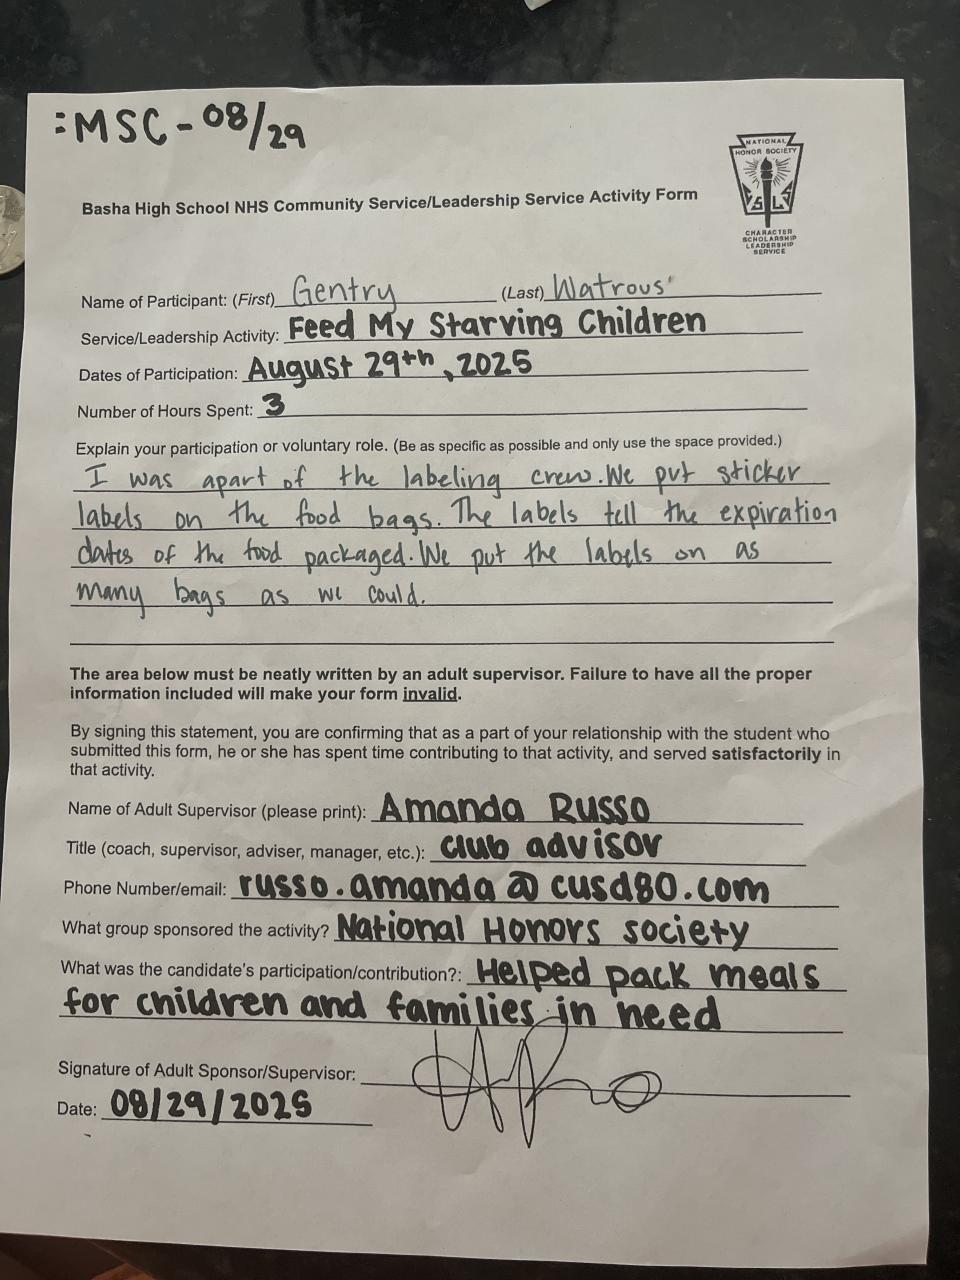 :MSC-08/29
NATIONAL
HONOR SOCIETY
CHARACTER
SCHOLARSHIP
LEADERSHIP
SERVICE
Basha High School NHS Community Service/Leadership Service Activity Form
Name of Participant: (First) Gentry (Last) Watrous
Service/Leadership Activity: Feed My Starving Children
Dates of Participation: August 29th, 2025
Number of Hours Spent: 3
Explain your participation or voluntary role. (Be as specific as possible and only use the space provided.)
I was apart of the labeling crew. We put sticker
labels on the food bags. The labels tell the expiration
dates of the food packaged. We put the labels on as
many bags as we could.
The area below must be neatly written by an adult supervisor. Failure to have all the proper
information included will make your form invalid.
By signing this statement, you are confirming that as a part of your relationship with the student who
submitted this form, he or she has spent time contributing to that activity, and served satisfactorily in
that activity.
Name of Adult Supervisor (please print): Amanda Russo
Title (coach, supervisor, adviser, manager, etc.): club advisor
Phone Number/email: russo.amanda@cusd80.com
What group sponsored the activity? National Honors society
What was the candidate's participation/contribution?: Helped pack meals
for children and families in need
Signature of Adult Sponsor/Supervisor:
Date: 08/29/2025